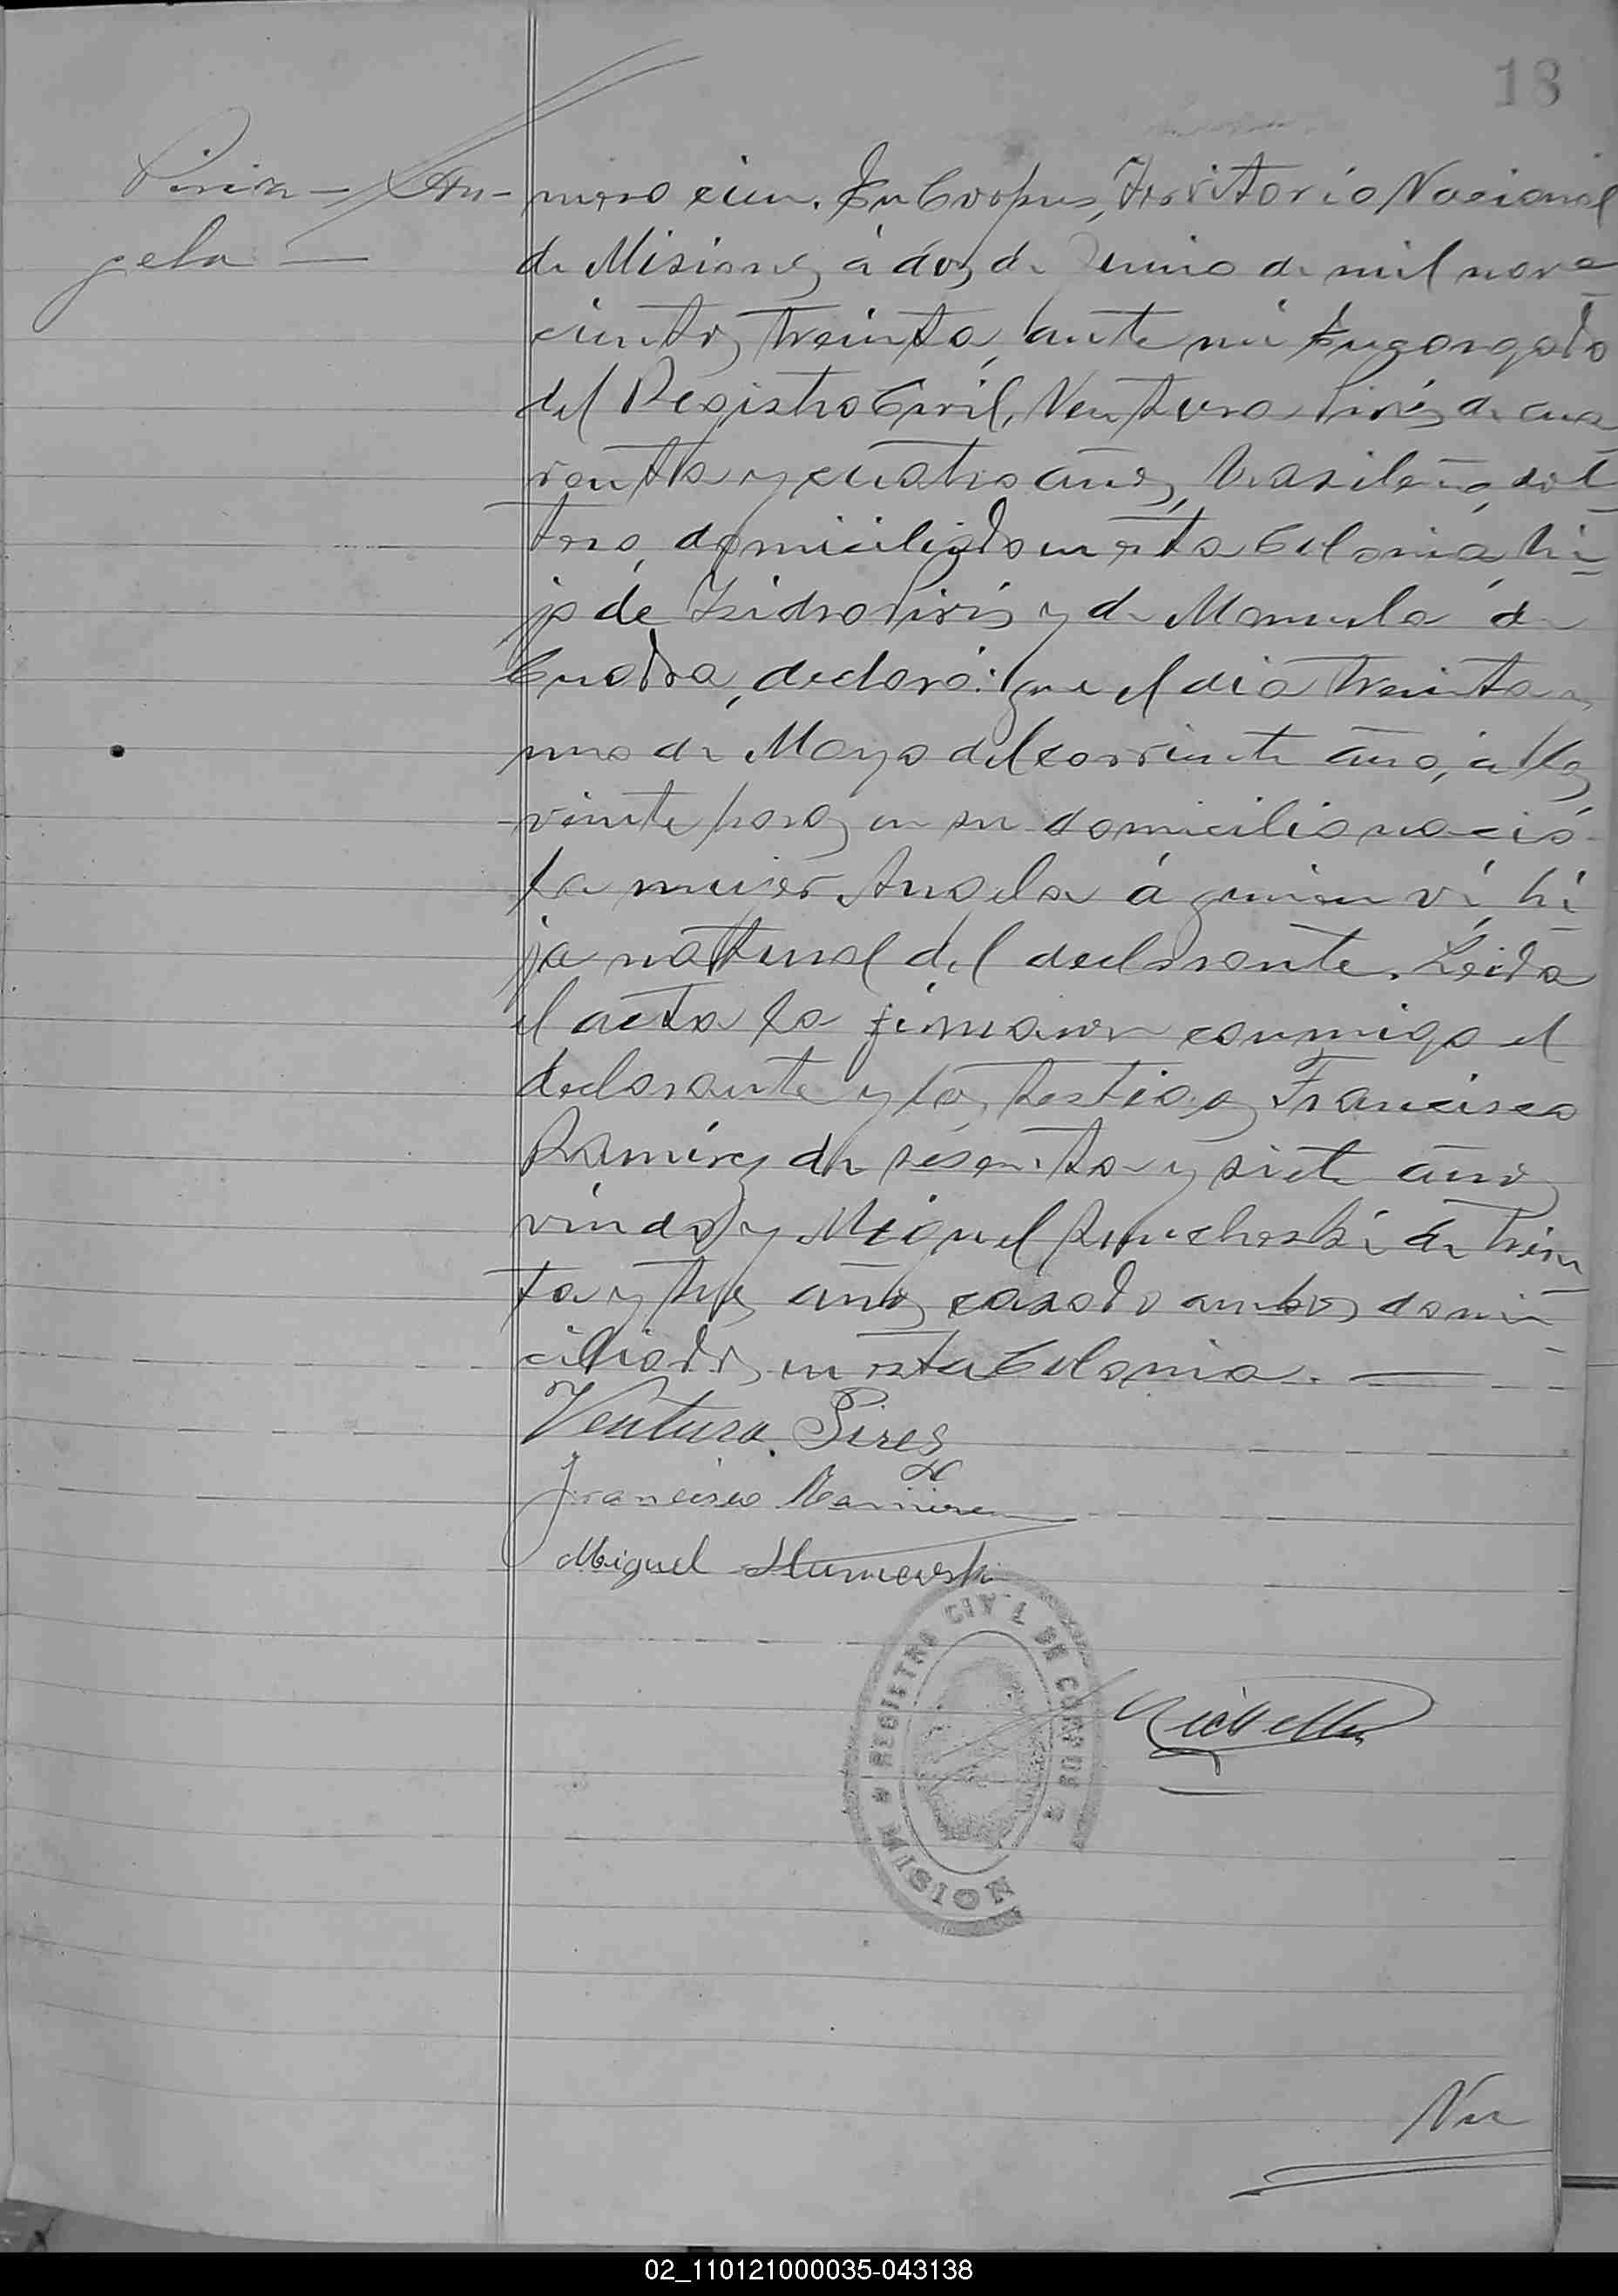 18
An-
gela
mero cien. En Corpus, Territorio Nacional
de Misiones, á dos de Junio de mil nove-
cientos treinta, ante mi Encargado
del Registro Civil, Ventura Pirés de cua-
renta y cuatro años, brasileño, sol-
tero, domiciliado en esta Colonia, hi-
jo de Isidro Pirés y de Manuela de
Cuadra, declaró: que el dia treinta y
uno de Mayo del corriente año, á las
veinte horas en su domicilio nació
la mujer Angela á quien ví, hi-
ja natural del declarante. Leida
el acta la firmaron conmigo el
declarante y los testigos Francisco
Ramírez de sesenta y siete años
viudo y Miguel de trein-
ta y tres años casado ambos domi-
ciliados en esta Colonia.
Ventura Pires
Francisco Ramirez
Miguel
REGISTRO CIVIL DE CORPUS
MISION
Nu
02_110121000035-043138